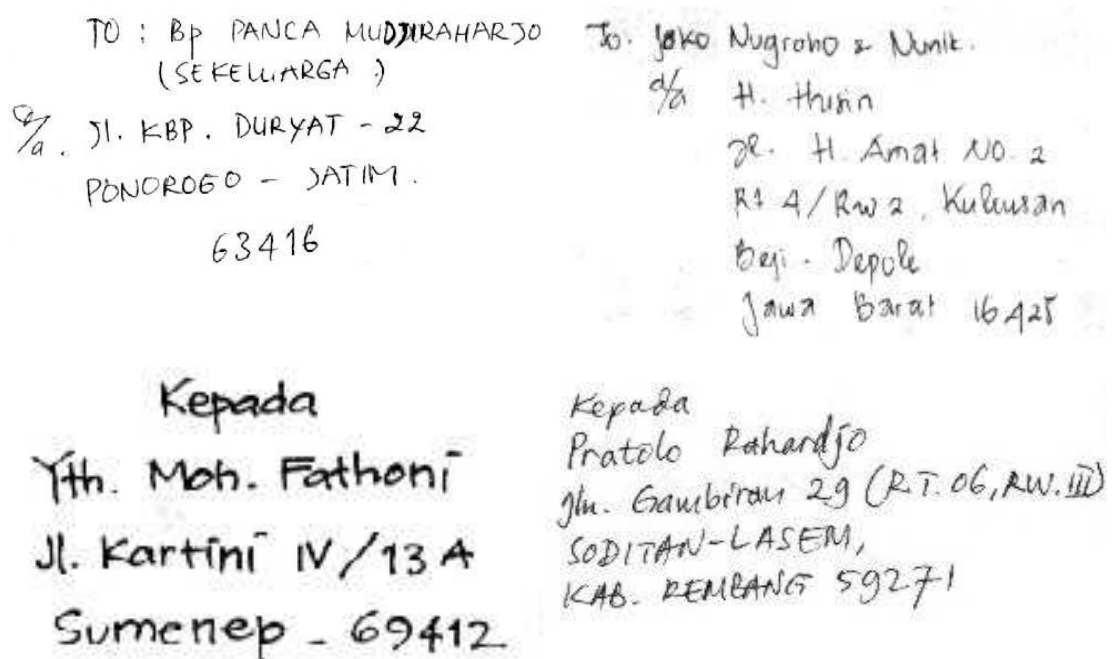 TO : Bp PANCA MUDJIRAHARJO
(SEKELUARGA)
d/a. Jl. KBP. DURYAT - 22
PONOROGO - JATIM.
63416
To. Joko Nugroho & Nunik.
d/a H. Husin
Jl. H. Amat NO. 2
Rt 4/Rw 2, Kukusan
Beji - Depok
Jawa Barat 16425
Kepada
Yth. Moh. Fathoni
Jl. Kartini IV/13 A
Sumenep - 69412
Kepada
Pratolo Rahardjo
Jln. Gambiran 29 (R.T. 06, RW. III)
SODITAN-LASEM,
KAB. REMBANG 59271